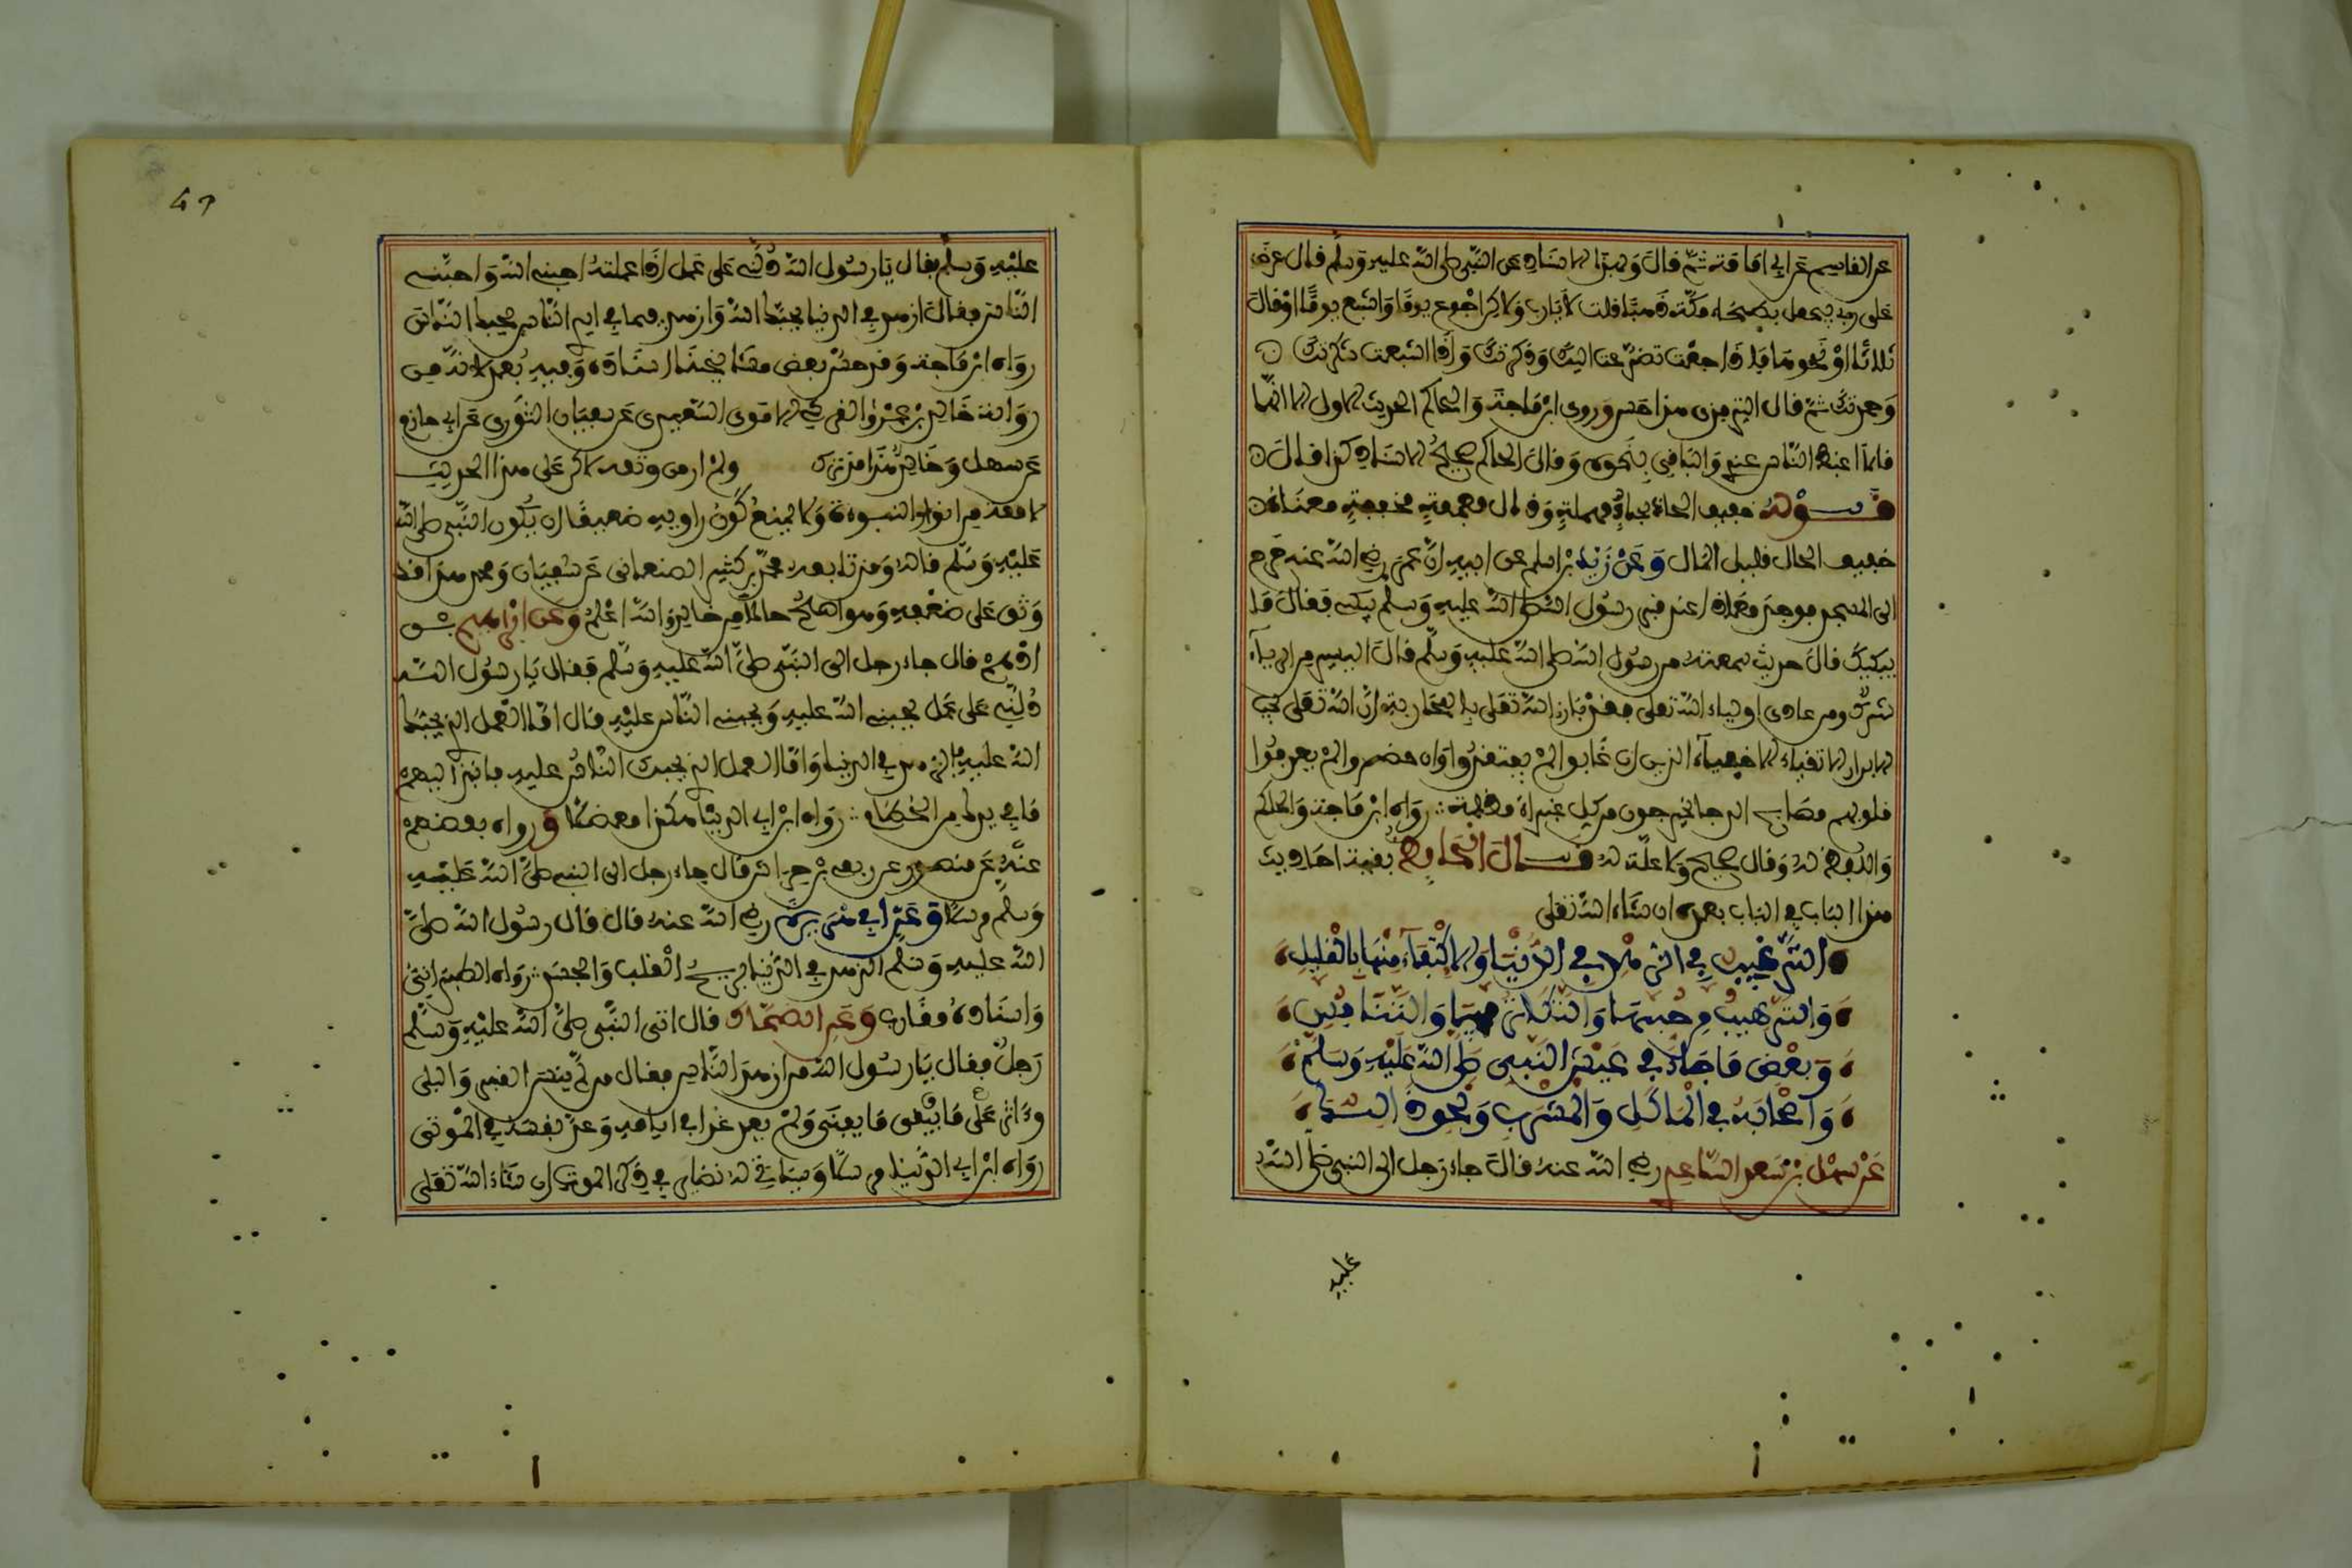 عن القاسم عن ابي امامة ثم قال وبهذا الاسناد عن النبي صلى الله عليه وسلم قال عرض
علي ربي ليجعل لي بطحاء مكة ذهبا قلت لا يارب ولاكن اجوع يوما واشبع يوما او قال
ثلاثا او نحو هذا فاذا جعت تضرعت اليك وذكرتك واذا اشبعت شكرتك
وحمدتك ثم قال الترمذي هذا حسن وروى ابن ماجة والحاكم الحديث الاول الا انهما
قالا اغبط الناس عندي والباقي بنحوه وقال الحاكم صحيح الاسناد كذا قال
قوله خفيف الحاذ بحاء مهملة وذال معجمة مخففة معناه
خفيف الحال قليل المال وعن زيد بن اسلم عن ابيه ان عمر رضي الله عنه خرج
الى المسجد فوجد معاذا عند قبر رسول الله صلى الله عليه وسلم يبكي فقال ما
يبكيك قال حديث سمعته من رسول الله صلى الله عليه وسلم قال اليسير من الرياء
شرك ومن عادى اولياء الله تعلى فقد بارز الله تعلى بالمحاربة ان الله تعلى يحب
الابرار الاتقياء الاخفياء الذين ان غابوا لم يفتقدوا وان حضروا لم يعرفوا
قلوبهم مصابيح الدجا يخرجون من كل غبراء مظلمة رواه ابن ماجة والحاكم
واللفظ له وقال صحيح ولا علة له قال الحافظ بقية احاديث
هذا الباب في الباب بعده ان شاء الله تعلى
الترغيب في الزهد في الدنيا والاكتفاء منها بالقليل
والترهيب من حبها والتكاثر فيها والتنافس
وبعض ما جاء في عيش النبي صلى الله عليه وسلم
واصحابه في المأكل والمشرب ونحوه
عن سهل بن سعد الساعدي رضي الله عنه قال جاء رجل الى النبي صلى الله
عليه
عليه وسلم فقال يا رسول الله دلني على عمل اذا عملته احبني الله واحبني
الناس فقال ازهد في الدنيا يحبك الله وازهد فيما في ايدي الناس يحبك الناس
رواه ابن ماجة وقد حسن بعض مشايخنا اسناده وفيه بعد لانه من
رواية خالد بن عمرو القرشي الاموي السعيدي عن سفيان الثوري عن ابي حازم
عن سهل وخالد هذا قد ترك ولم ار من وثقه لاكن على هذا الحديث
لامعة من انوار النبوة ولا يمنع كون راويه ضعيفا ان يكون النبي صلى الله
عليه وسلم قاله وقد تابعه محمد بن كثير الصنعاني عن سفيان ومحمد هذا قد
وثق على ضعفه وهو اصلح حالا من خالد والله اعلم وعن ابراهيم بن
ادهم قال جاء رجل الى النبي صلى الله عليه وسلم فقال يا رسول الله
دلني على عمل يحبني الله عليه ويحبني الناس عليه قال اما العمل الذي يحبك
الله عليه الزهد في الدنيا واما العمل الذي يحبك الناس عليه فانبذ اليهم
ما في يدك من الحطام رواه ابن ابي الدنيا هكذا معضلا ورواه بعضهم
عنه عن منصور عن ربعي بن حراش قال جاء رجل الى النبي صلى الله عليه
وسلم مرسلا وعن ابي هريرة رضي الله عنه قال قال رسول الله صلى
الله عليه وسلم الزهد في الدنيا يريح القلب والجسد رواه الطبراني
واسناده مقارب وعن الضحاك قال اتى النبي صلى الله عليه وسلم
رجل فقال يا رسول الله من ازهد الناس فقال من لم ينس القبر والبلى
واثر على ما يبقى ما يفنى ولم يعد غدا في ايامه وعد نفسه في الموتى
رواه ابن ابي الدنيا مرسلا وسياتي له نضاير في ذكر الموت ان شاء الله تعلى